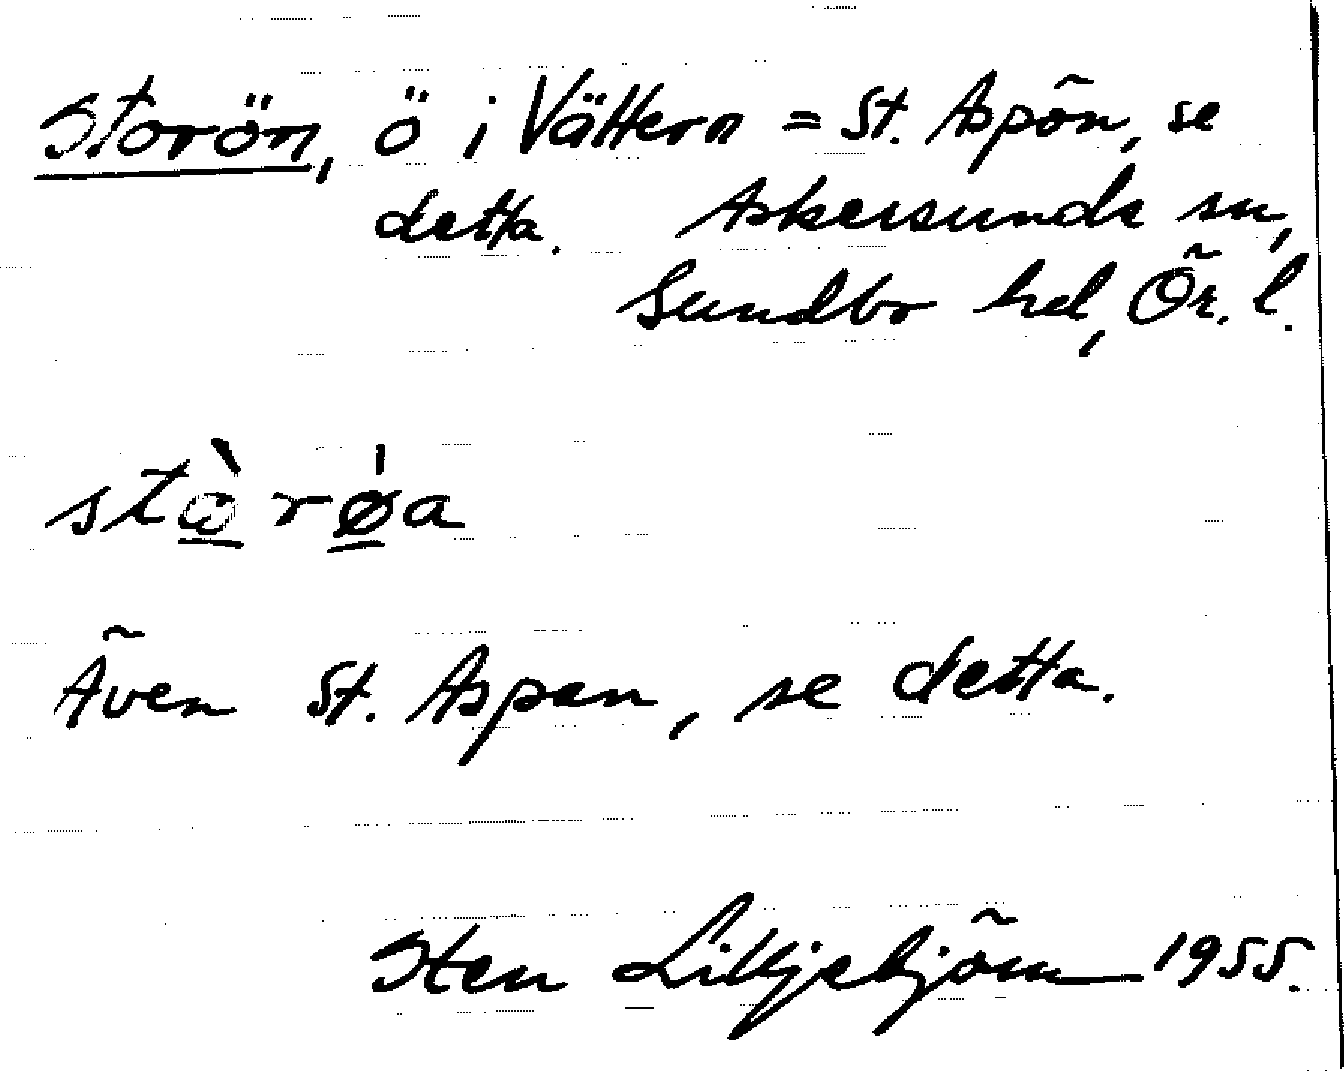 Storön, ö i Vättern = St. Aspön, se
detta. Askersunds sn,
Sundbo hd, Ör. l.
stὼ̲rǿ̲a
Även St. Aspan, se detta.
Sten Lilljebjörn 1955.